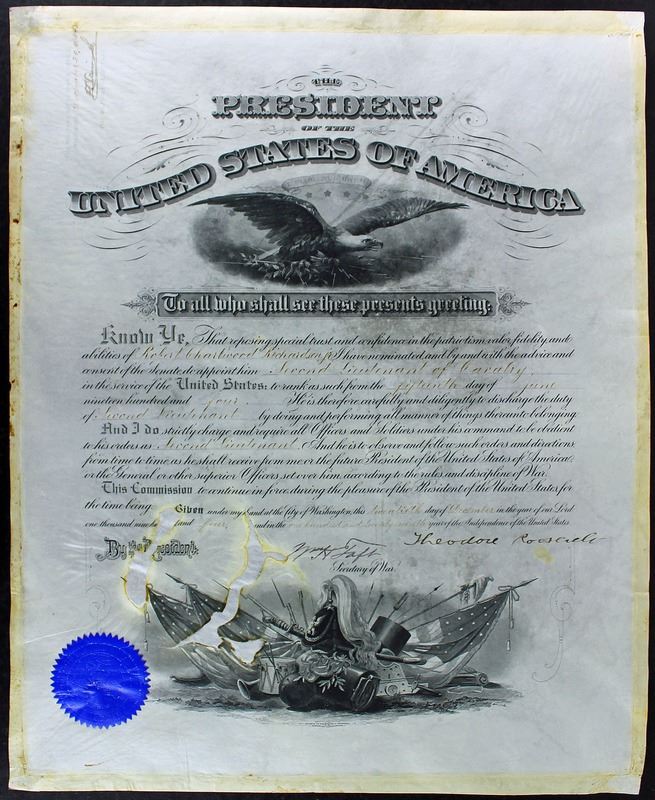 THE
PRESIDENT
OF THE
UNITED STATES OF AMERICA
To all who shall see these presents greeting:
Know Ye, That reposing special trust and confidence in the patriotism, valor, fidelity and
abilities of Robert Charlwood Richardson, jr. I have nominated, and by and with the advice and
consent of the Senate do appoint him Second Lieutenant of Cavalry
in the service of the United States: to rank as such from the fifteenth day of June
nineteen hundred and four. He is therefore carefully and diligently to discharge the duty
of Second Lieutenant by doing and performing all manner of things thereunto belonging.
And I do strictly charge and require all Officers and Soldiers under his command to be obedient
to his orders as Second Lieutenant. And he is to observe and follow such orders and directions
from time to time, as he shall receive from me, or the future President of the United States of America,
or the General or other superior Officers set over him, according to the rules and discipline of War.
This Commission to continue in force during the pleasure of the President of the United States for
the time being.
Given under my hand at the City of Washington, this day of December in the year of our Lord
one thousand nine and four, and in the one hundred and twenty-ninth year of the Independence of the United States.
By the President:
Theodore Roosevelt
Wm H Taft
Secretary of War.